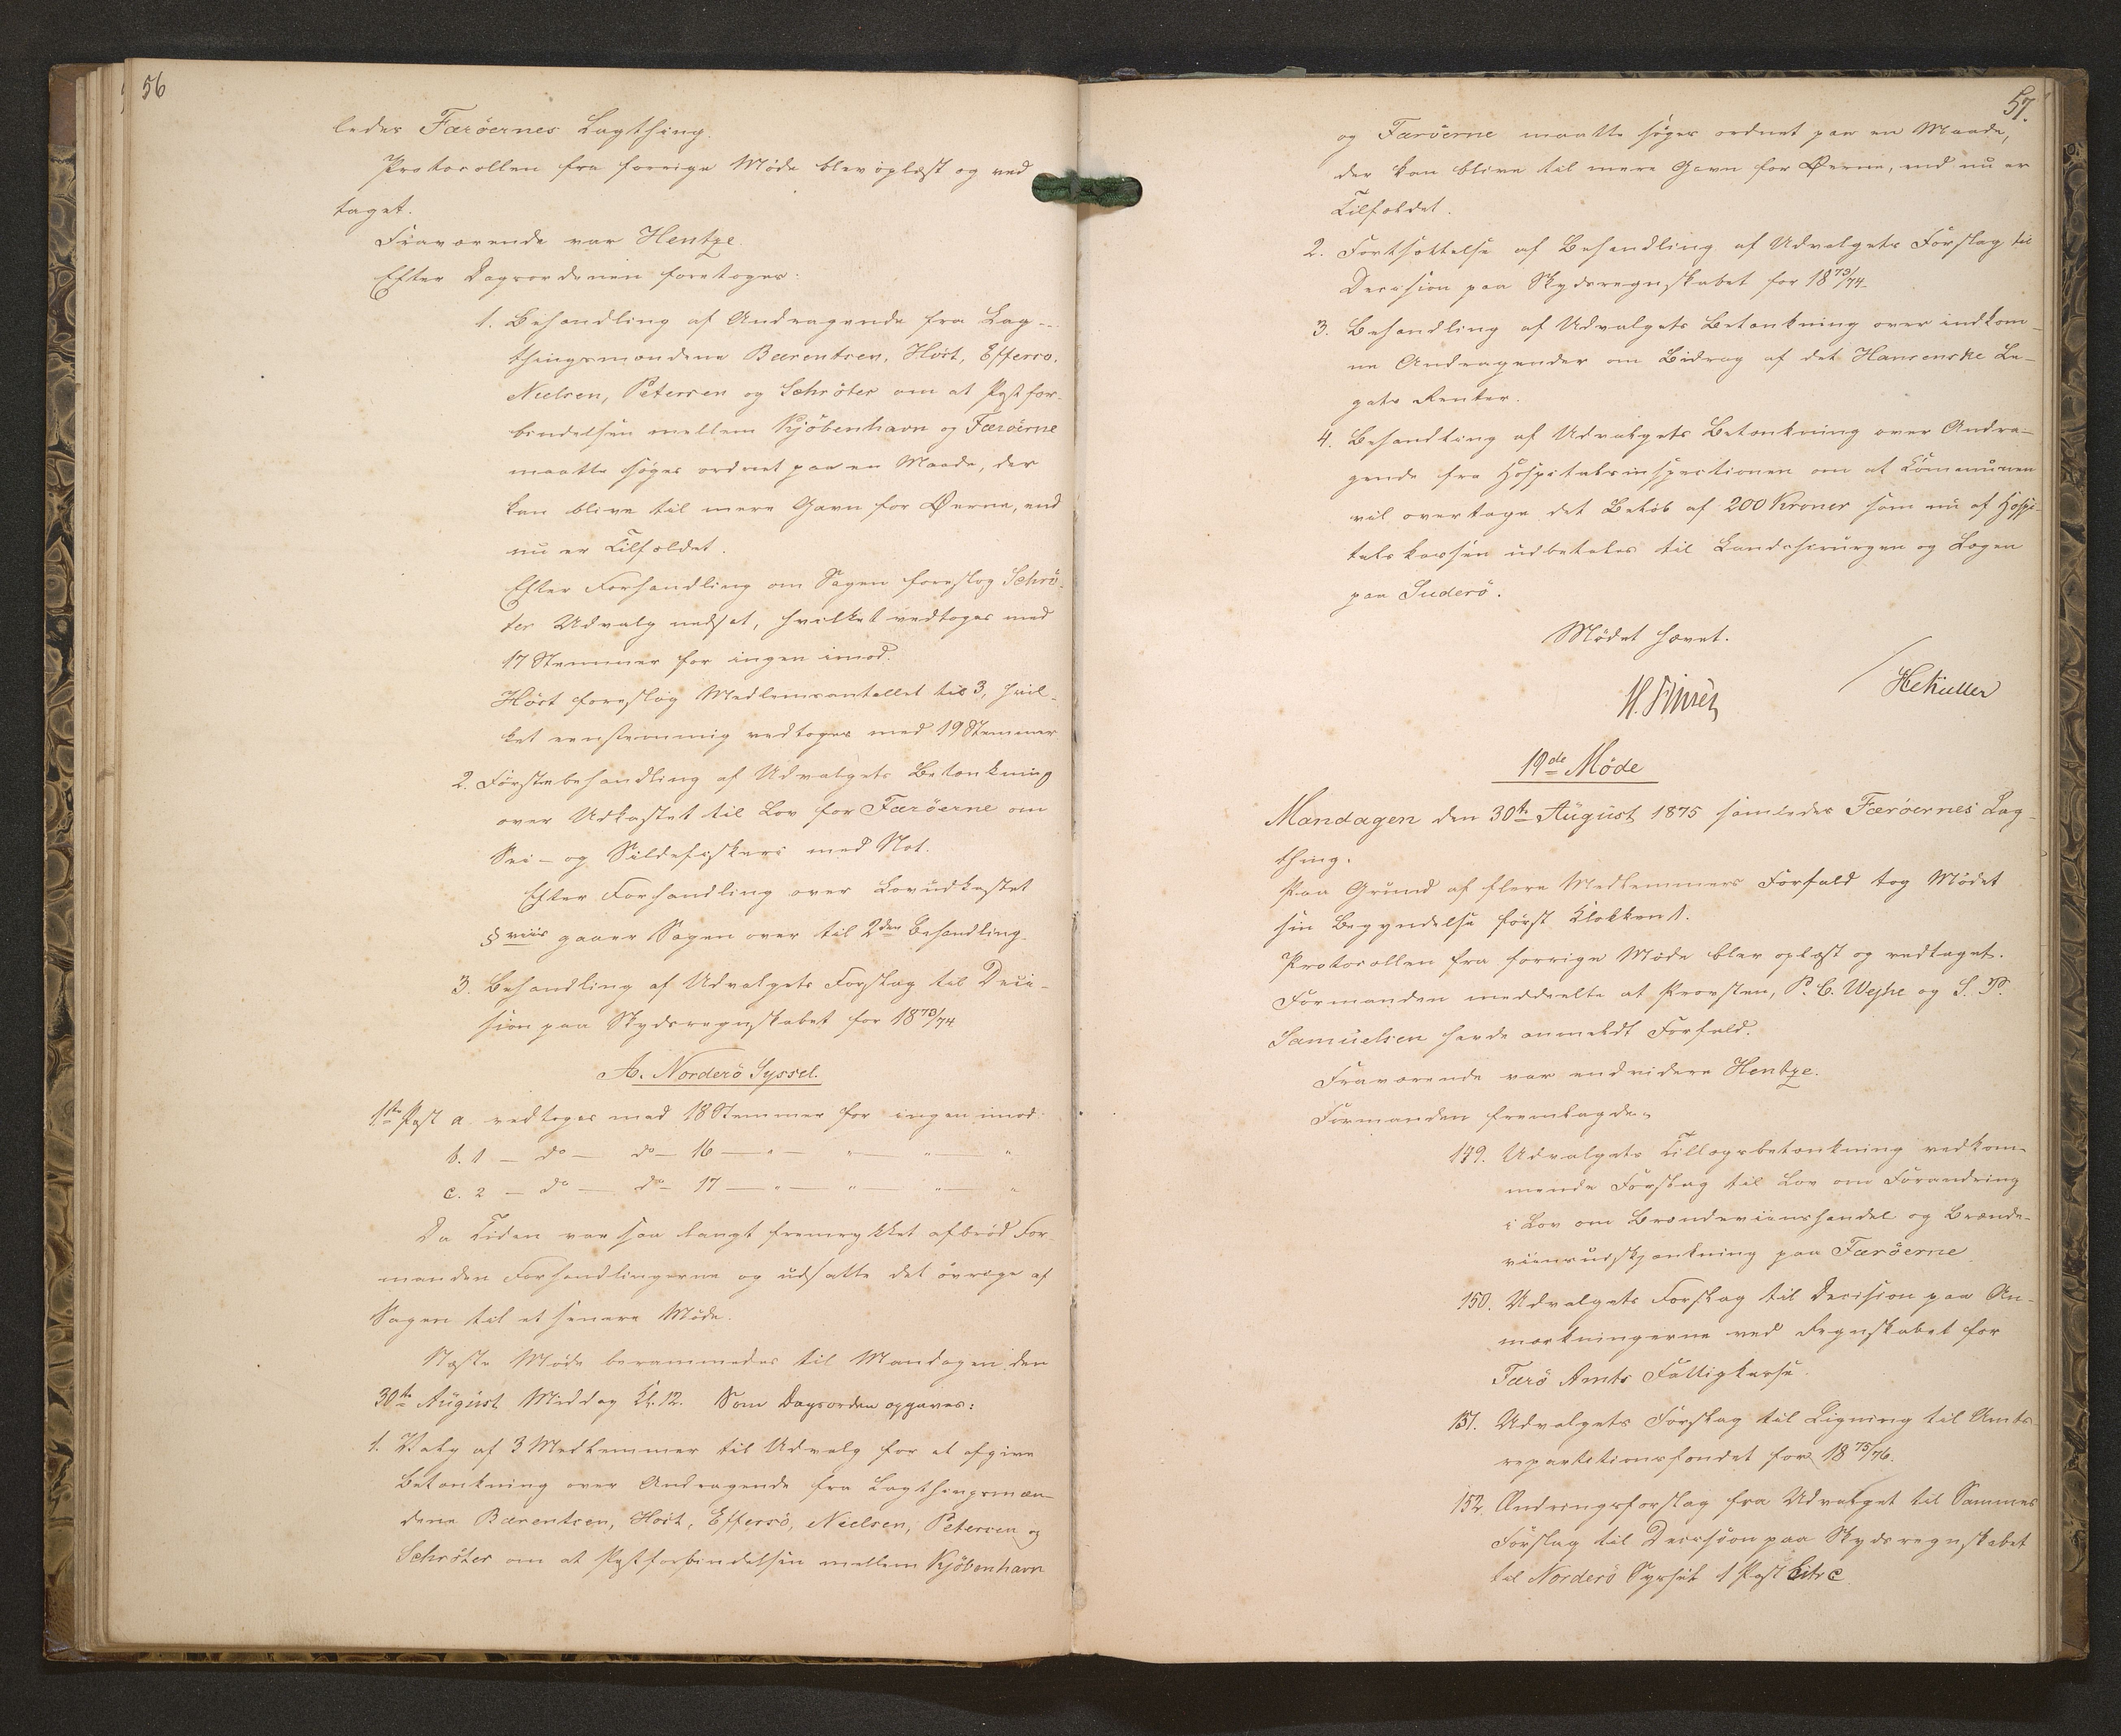 56
ledes Færöernes Lagthing.
Protocollen fra forrige Møde blev oplæst og ved
taget.
Fraværende var Hentze.
Efter Dagsordenen foretoges:
1. Behandling af Andragende fra Lag-
thingsmændene Bærentsen, Höst, Effersö.
Nielsen, Petersen og Schröter om at Postfor-
bindelsen mellem Kjöbenhavn og Færöerne
maatte söges ordnet paa en Maade, der
kan blive til mere Gavn for Øerne, end
nu er Tilfældet.
Efter Forhandling om Sagen foreslog Schrö-
ter Udvalg nedsat, hvilket vedtoges med
17 Stemmer for ingen imod.
Höst foreslog Medlemsantallet til 3, hvil-
ket eenstemmig vedtoges med 19 Stemmer
2. Förstebehandling af Udvalgets Betænkning
over Udkastet til Lov for Færöerne om
Sei- og Sildefiskeri med Not.
Efter Forhandling over Lovudkastet
§ viis gaaer Sagen over til 2den Behandling.
3. Behandling af Udvalgets Forslag til Deci-
sion paa Skydsregnskabet for 1873/74
A. Norderö Syssel.
1ste Post a. vedtoges med 18 Stemmer for ingen imod.
b. 1 — do — do — 16 — " — " — " — "
c. 2 — do — do — 17 — " — " — " — "
Da Tiden var saa langt fremrykket afbröd For-
manden Forhandlingerne og udsatte det övrige af
Sagen til et senere Möde.
Næste Möde berammedes til Mandagen den
30te August Middag Kl. 12. Som Dagsorden opgaves:
1. Valg af 3 Medlemmer til Udvalg for at afgive
Betænkning over Andragende fra Lagthingsmæn-
dene Bærentsen, Höst, Effersö, Nielsen, Petersen og
Schröter om at Postforbindelsen mellem Kjöbenhavn
57.
og Færöerne maatte söges ordnet paa en Maade,
der kan blive til mere Gavn for Øerne, end nu er
Tilfældet.
2. Fortsættelse af Behandling af Udvalgets Forslag til
Decision paa Skydsregnskabet for 1873/74.
3. Behandling af Udvalgets Betænkning over indkom-
ne Andragender om Bidrag af det Hansenske Le-
gats Renter.
4. Behandling af Udvalgets Betænkning over Andra-
gende fra Hospitalsinspectionen om at Communen
vil overtage det Beløb af 200 Kroner som nu af Hospi-
talskassen udbetales til Landchirurgen og Lægen
paa Suderö.
Mödet hævet.
H. Finsen
HC Müller
19de Møde
Mandagen den 30te August 1875 samledes Færöernes Lag-
thing.
Paa Grund af flere Medlemmers Forfald tog Mödet
sin Begyndelse först Klokken 1.
Protocollen fra forrige Möde blev oplæst og vedtaget.
Formanden meddeelte at Provsten, P. C. Wejhe og S. P.
Samuelsen havde anmeldt Forfald.
Fraværende var endvidere Hentze.
Formanden fremlagde:
149. Udvalgets Tillægsbetænkning vedkom-
mende Forslag til Lov om Forandring
i Lov om Brændeviinshandel og Brænde-
viinsudskjænkning paa Færöerne
150. Udvalgets Forslag til Decision paa An-
mærkningerne ved Regnskabet for
Færö Amts Fattigkasse.
151. Udvalgets Forslag til Ligning til Amts-
repartitionsfondet for 1875/76.
152. Ændringsforslag fra Udvalget til Sammes
Forslag til Decision paa Skydsregnskabet
til Norderö Syssel 1 Post Litr c